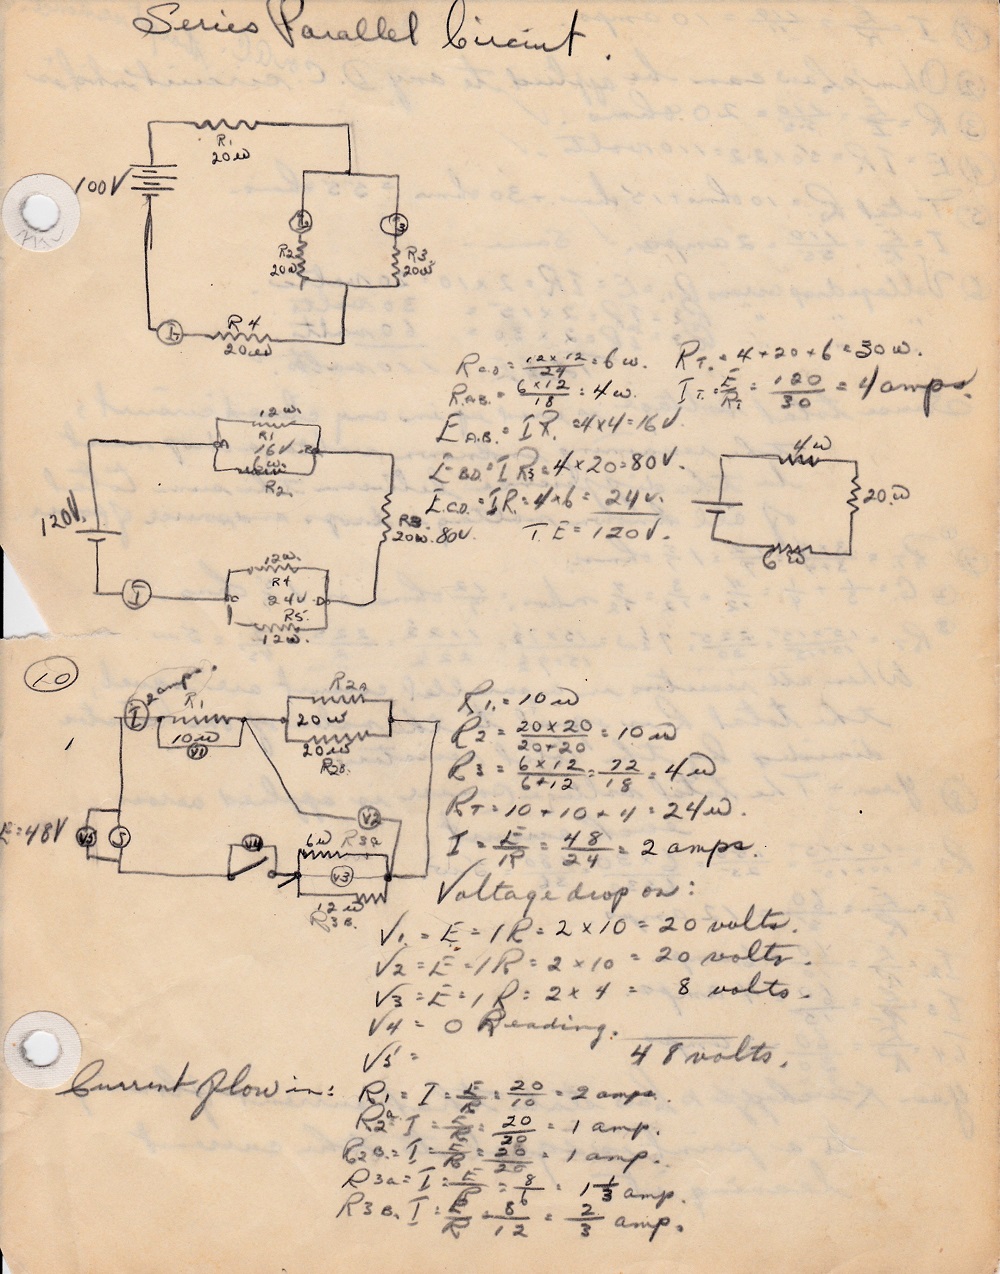 Series Parallel Circuit.
R1
20ω
100V
I2
I3
R2
20ω
R3
20ω
IT
R4
20ω
RCD = 12×12/24 = 6ω. RT. = 4+20+6 = 30ω.
RAB. = 6×12/18 = 4ω. IT. = E/RT = 120/30 = 4 amps.
EA.B. = IR. = 4×4 = 16V.
EBD = IR3 = 4×20 = 80V.
EC.D. = IR. = 4×6 = 24V.
T.E = 120V.
12ω.
R1
A 16V. B
6ω.
R2
120V.
R3
20ω. 80V.
12ω.
R4
C 24V D
R5.
12ω.
I
4ω
20.ω
6ω
10
I 2 amps
R1
10ω
V1
R2A
20ω
20ω
R2B.
V2
E=48V
V5
S
V4
6ω R3A
V3
12ω
R3B.
R1. = 10ω
R2 = 20×20/20+20 = 10ω
R3 = 6×12/6+12 = 72/18 = 4ω
RT = 10+10+4 = 24ω.
I = E/R = 48/24 = 2 amps.
Voltage drop on:
V1. = E = IR = 2×10 = 20 volts.
V2 = E = IR = 2×10 = 20 volts.
V3 = E = IR = 2×4 = 8 volts.
V4 = 0 Reading.
V5 = 48 volts.
Current flow in: R1 = I = E/R = 20/10 = 2 amps.
R2a = I = E/R = 20/20 = 1 amp.
R2B. = I = E/R = 20/20 = 1 amp.
R3a = I = E/R = 8/6 = 1 1/3 amp.
R3B. I = E/R = 8/12 = 2/3 amp.